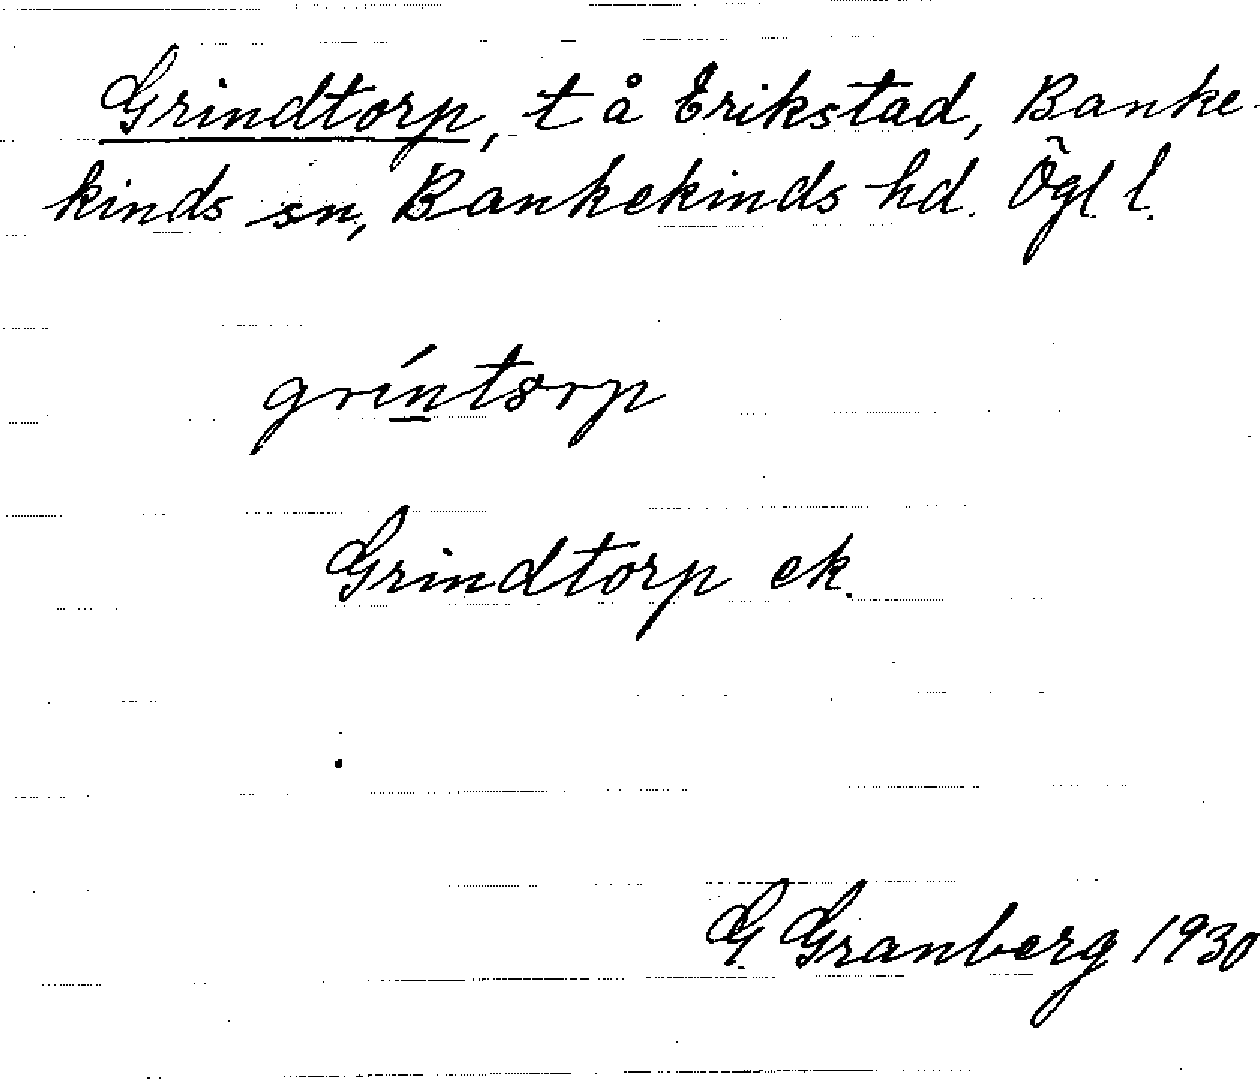 Grindtorp, t å Erikstad, Banke-
kinds sn, Bankekinds hd. Ögl l.
gríntorp
Grindtorp ek.
G. Granberg 1930